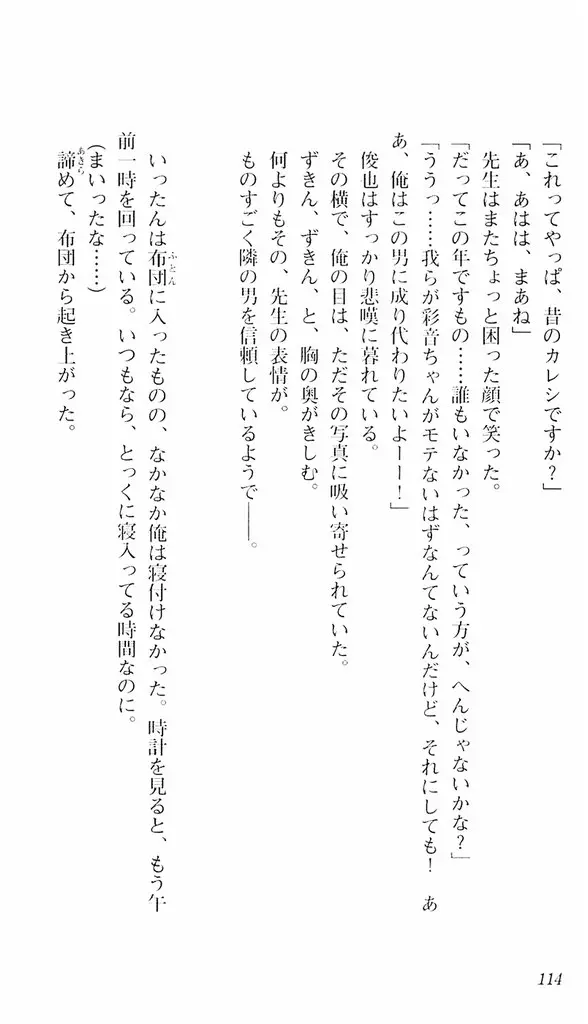 「これってやっぱ、昔のカレシですか?」
「あ、あはは、まあね」
先生はまたちょっと困った顔で笑った。
「だってこの年ですもの……誰もいなかった、っていう方が、へんじゃないかな?」
「ううっ……我らが彩音ちゃんがモテないはずなんてないんだけど、それにしても! あ
あ、俺はこの男に成り代わりたいよーー!」
俊也はすっかり悲嘆に暮れている。
その横で、俺の目は、ただその写真に吸い寄せられていた。
ずきん、ずきん、と、胸の奥がきしむ。
何よりもその、先生の表情が。
ものすごく隣の男を信頼しているようで――。
いったんは布団に入ったものの、なかなか俺は寝付けなかった。時計を見ると、もう午
ふとん
前一時を回っている。いつもなら、とっくに寝入ってる時間なのに。
(まいったな……)
諦めて、布団から起き上がった。
あきら
114